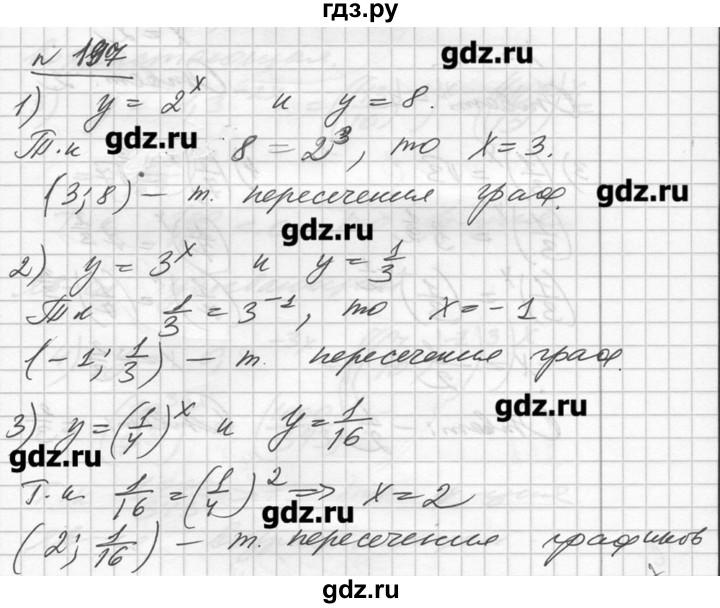 гдз.ру
№ 197
gdz.ru
1) y = 2^x и y = 8.
Т.к gdz.ru 8 = 2^3, то x = 3.
(3; 8) – т. пересечения граф. gdz.ru
gdz.ru
2) y = 3^x и y = 1/3
Тк 1/3 = 3^-1, то x = -1
(-1; 1/3) – т. пересечения граф.
gdz.ru
3) y = (1/4)^x и y = 1/16
gdz.ru
Т.к. 1/16 = (1/4)^2 => x = 2
gdz.ru
(2; 1/16) – т. пересечения графиков
gdz.ru